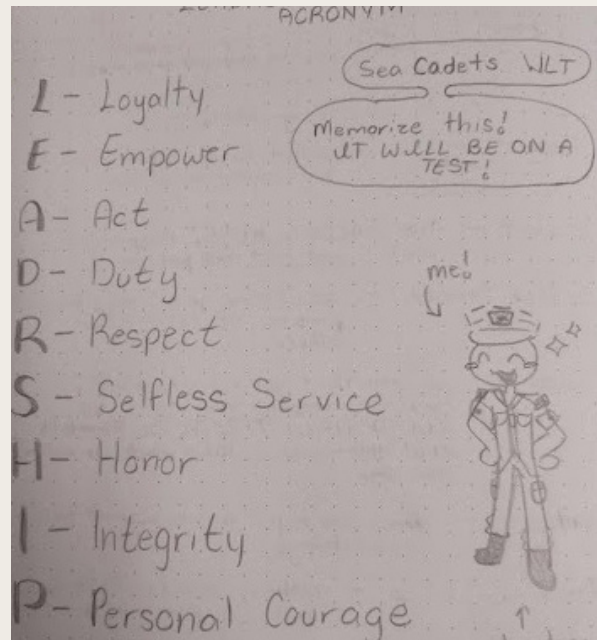 ACRONYM
Sea Cadets WLT
Memorize this!
IT WILL BE ON A
TEST!
L - Loyalty
E - Empower
A - Act
D - Duty
R - Respect
S - Selfless Service
H - Honor
I - Integrity
P - Personal Courage
me!